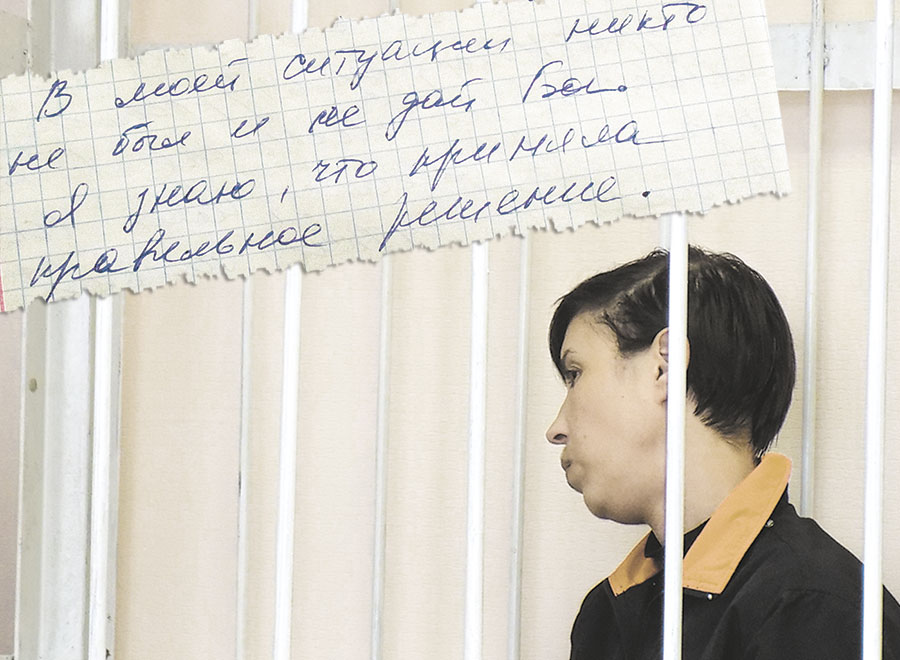 В моей ситуации никто
не был и не дай Бог.
Я знаю, что приняла
правильное решение.